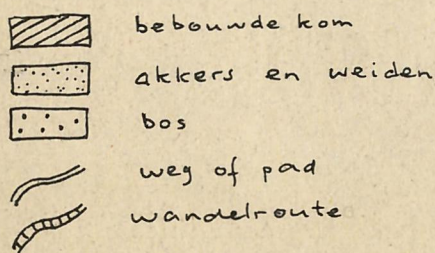 bebouwde kom
akkers en weiden
bos
weg of pad
wandelroute